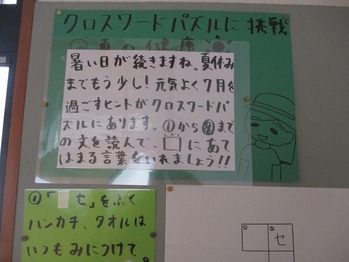 クロスワードパズルに挑戦
夏の健康
暑い日が続きますね。夏休み
までもう少し!元気よく7月を
過ごすヒントがクロスワードパ
ズルにあります。①から⑧まで
の文を読んで、□にあて
はまる言葉をいれましょう!!
①「□セ」をふく
ハンカチ、タオルは
いつもみにつけて。
セ